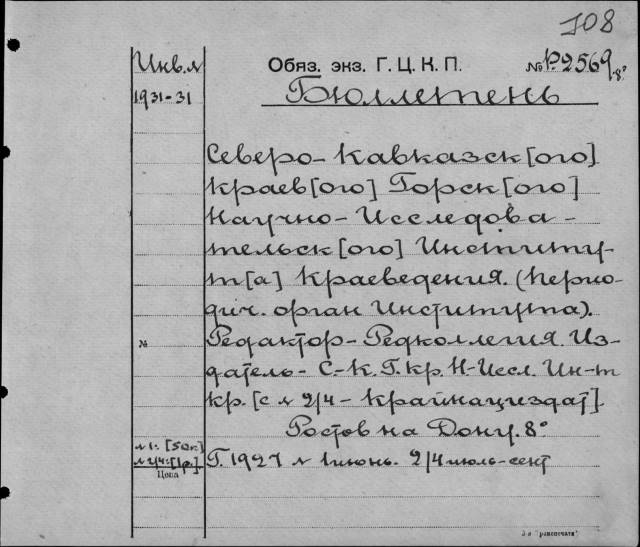 708
Инв.л
Обяз. экз. Г. Ц. К. П.
№ Р.2569 8°
1931-31
Бюллетень
Северо-Кавказск[ого]
Краев[ого] Горск[ого]
Научно-Исследова-
тельск[ого] Институ-
т[а] Краеведения. (Перио-
дич. орган Института).
№ Редактор-Редколлегия. Из-
датель- С-К. Г. Кр. Н-Иссл. Ин-т
кр. [с № 2/4 - Крайнациздат].
Ростов на Дону. 8°
№ 1: [50к.]
№ 2/4: [1р.] Г. 1927 № 1 июнь. 2/4 июль-сент
Цена